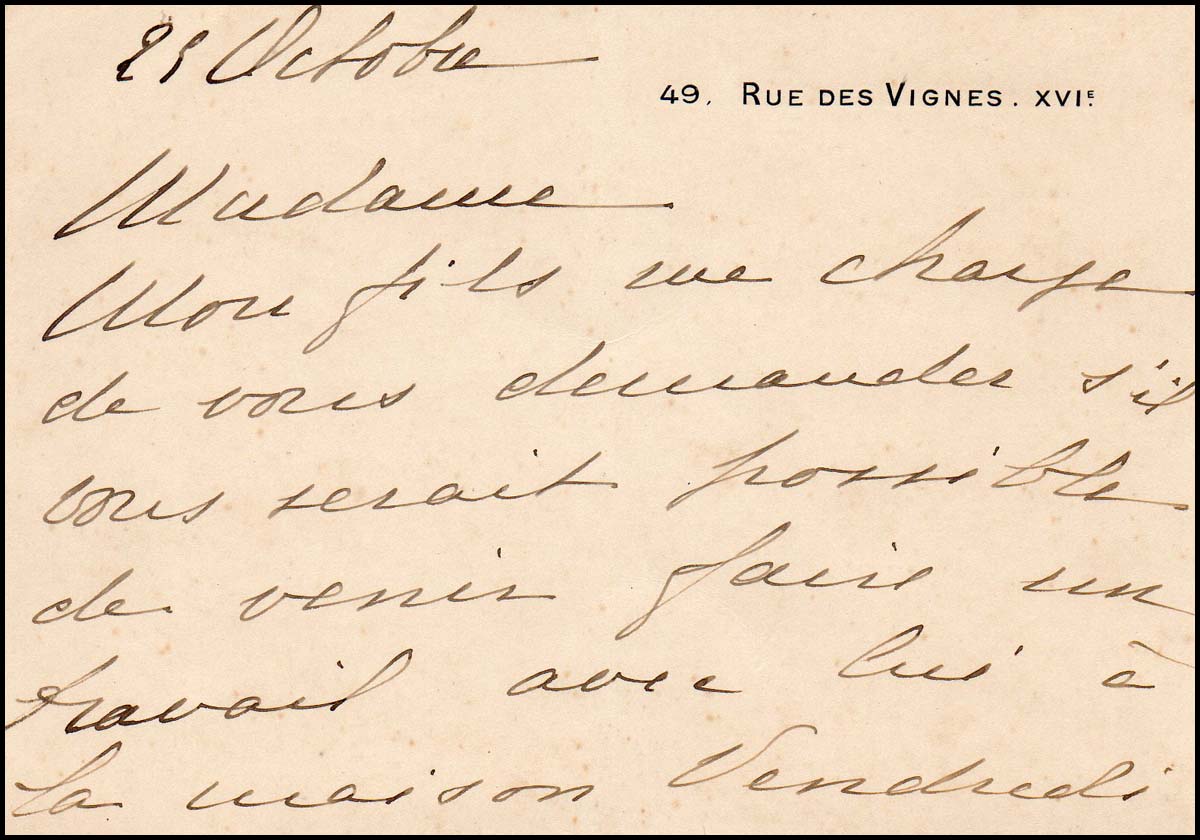 25 Octobre
49. RUE DES VIGNES. XVIE.
Madame
Mon fils me charge
de vous demander s'il
vous serait possible
de venir faire un
travail avec lui à
la maison Vendredi